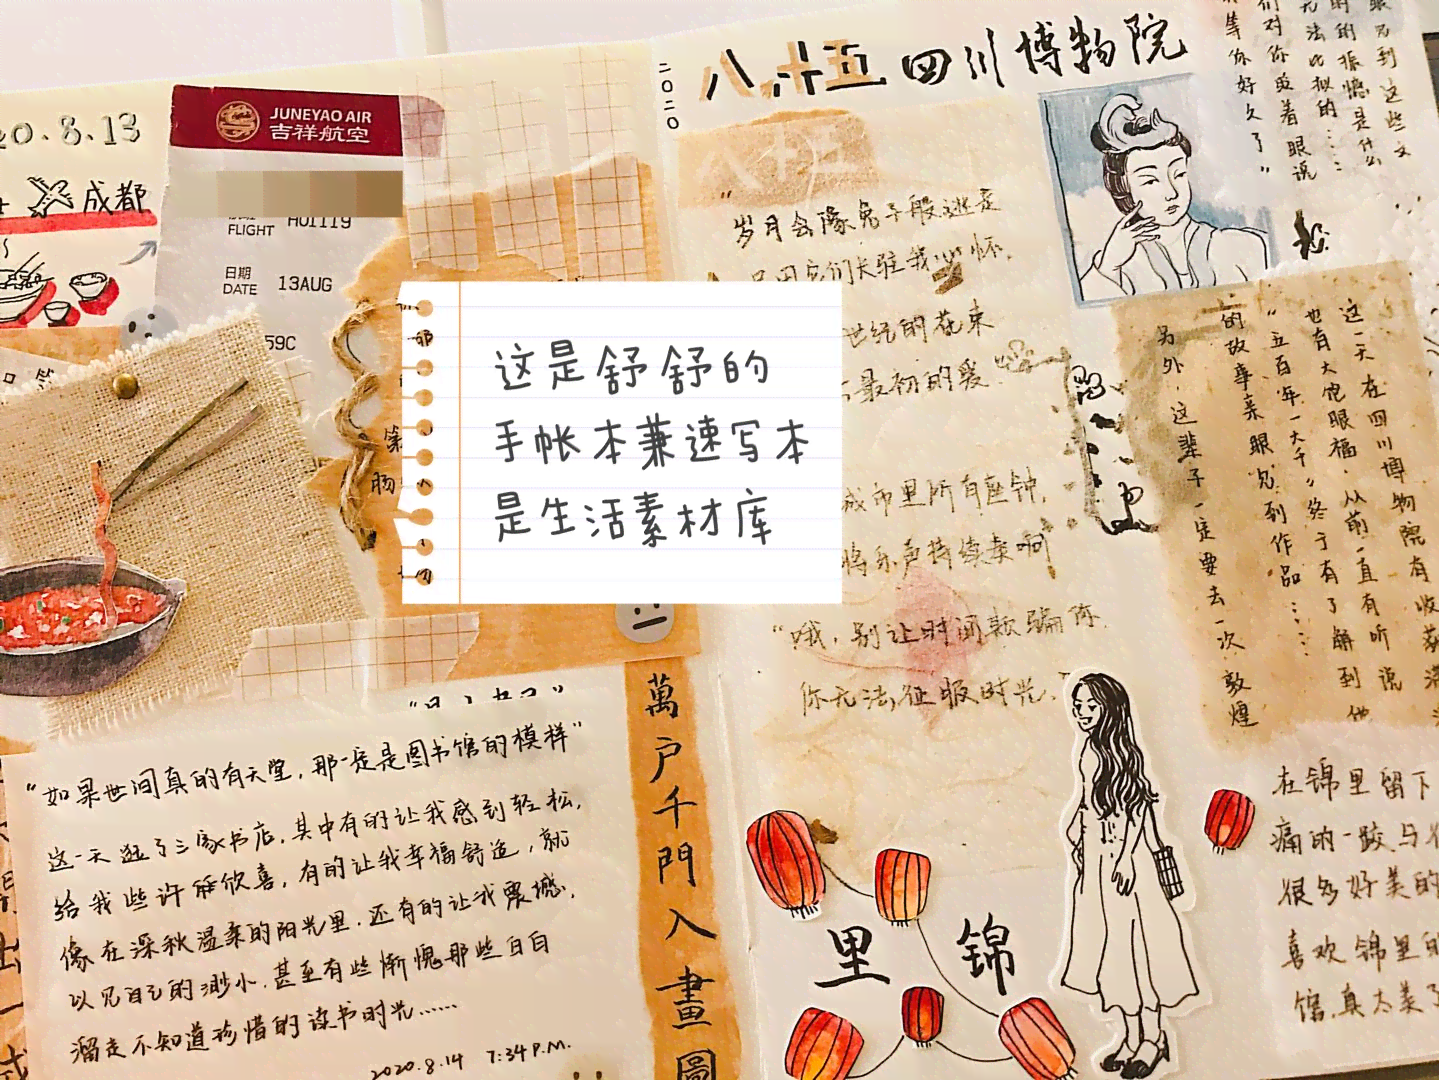 20.8.13
成都
JUNEYAO AIR
吉祥航空
FLIGHT HO1119
日期
DATE 13AUG
59C
这是舒舒的
手帐本兼速写本
是生活素材库
"如果世间真的有天堂，那一定是图书馆的模样"
这一天逛了三家书店，其中有的让我感到轻松，
给我些许催欣喜，有的让我幸福舒适，就
像在深秋温柔的阳光里，还有的让我震撼，
以见自己的渺小，甚至有些惭愧那些白白
溜走不知道珍惜的读书时光……
2020.8.14 7:34 P.M.
萬户千門入畫圖
2020
八.十五 四川博物院
"岁月会像兔子般逃走
世纪的花束
最初的爱
城市里所有座钟，
将乐声持续奏响
"哦，别让时间欺骗你
你无法征服时光。"
眼见到这些文
的的振憾是什么
无法比拟的……
们对你眨着眼说
等你好久了"
这一天在四川博物院有收获满
也有大饱眼福，从前一直有听说
"五百年一大千"终于有了解到他
的故事亲眼见到作品……
另外，这辈子一定要去一次敦煌
里 锦
在锦里留下
痛的一跤与
很多好美的
喜欢锦里的
馆，真太美了